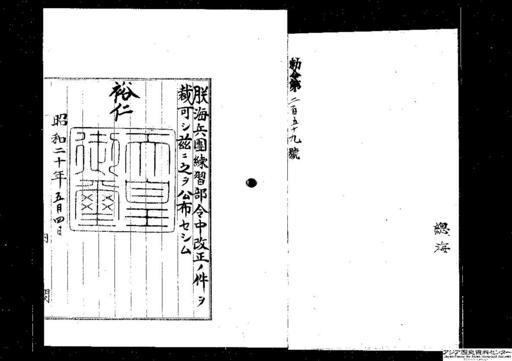 勅令第二百五十九號
總海
朕海兵團練習部令中改正ノ件ヲ
裁可シ茲ニ之ヲ公布セシム
裕仁
天皇御璽
昭和二十年五月四日
内閣
アジア歴史資料センター